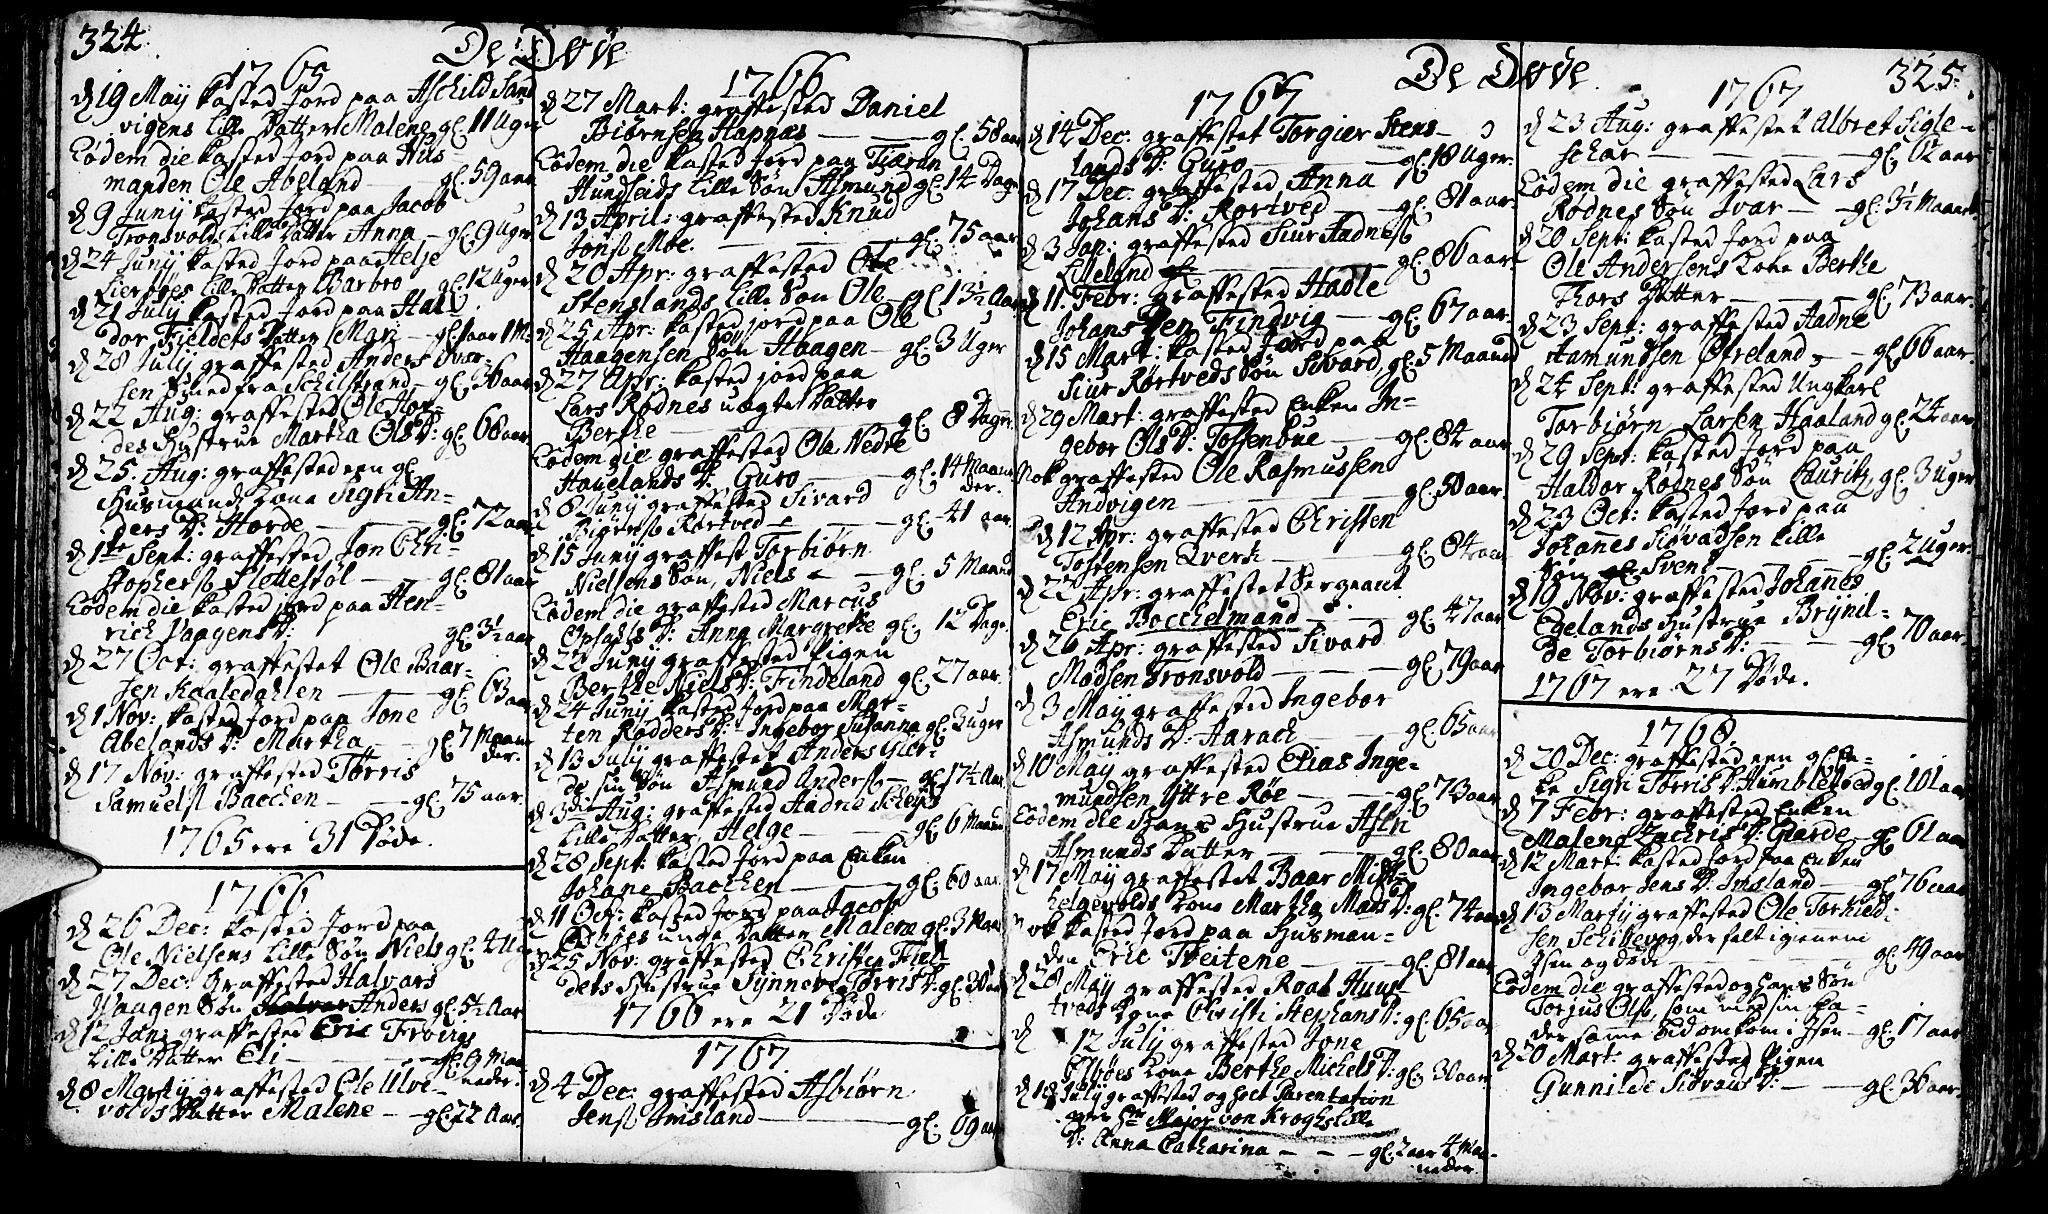 324.
De Døde
1765
d 19 Maij kasted Jord paa Aschild Sand
vigens lille Datter Malene gl. 11 Uger
Eodem die kasted Jord paa Huus-
manden Ole Abeland — gl. 59 aar
d 9 Junij kasted Jord paa Jacob
Tronsvolds lille Datter Anna — gl. 9 Uger
d 24 Junij kasted Jord paa Helje
lille Datter Barbro gl. 12 Uger
d 21 Julij kasted Jord paa Hal-
dor Fieldets Datter Mari — gl. 1 aar 1 M:
d 28 Julij graffested Anders Iver-
sen fra Schilstrand — gl. 36 aar
d 22 Aug: graffested Ole Hor-
des Hustrue Martha Ols D: gl. 68 aar
d 25. Aug: graffested een gl.
Huusmands Kone Sigri An-
ders D: Horde — gl. 72 aar
d 1te Sept: graffested Jon Chri-
stophers Slettestøl — gl. 81 aar
Eodem die kasted jord paa Hen-
rich Vaagens D: gl. 3½ aar
d 27 Oct: graffestet Ole Baar-
sen Kaaledahlen — gl. 63 aar
d 1 Nov: kasted Jord paa Tone
Abelands D: Martha — gl. 7 Maane
der.
d 17 Nov: graffested Tørris
Samuels Bacchen — gl. 75 aar.
1765 ere 31 Døde.
1766
d 26 Dec: kasted Jord paa
Ole Nielsens lille Søn Niels gl. 4 Ug
d 27 Dec: graffested Halvars
Waagen Søn Anders gl. 5½ Aar
d 12 Jan: graffested Eric Frøings
lille Datter Eli — gl. 9 Maa
neder.
d 8 Martij graffested Ole Ulve-
volds Datter Malene — gl. 22 Aar.
1766
d 27 Mart: graffested Daniel
Biørnsen Hapnæs — gl. 58 aar
Eodem die kasted Jord paa Tiæran
Hundseids lille Søn Asmund gl. 14 Dage
d 13 April: graffested Knud
Jons Moe. — gl. 75 aar.
d 20 Apr: graffested Ole
Stenslands lille Søn Ole — gl. 13½ Aar
d 25 Apr: kasted jord paa Ole
Haagensen Søn Haagen — gl. 3 Uger
d 27 Apr: kasted jord paa
Lars Rødnes uægte Datter
Berthe — gl. 8 Dager.
Eodem die graffested Ole Nedre
Hauelands D: Guro — gl. 14 Maane
der.
d 8 Junij graffested Sivard
Biørns Rørtved — gl. 41 aar.
d 15 Junij graffest Torbiørn
Nielsens Søn, Niels — gl. 5 Maaned
Eodem die graffested Marcus
Opsahls D: Anna Margrethe gl. 12 Dage.
d 22 Junij graffested Pigen
Berthe Niels D: Findeland gl. 27 aar.
d 24 Junij kasted Jord paa Mor-
ten Rødders D: Ingebor Susanna gl. 3 uger
d 13 Julij graffestet Anders Gier-
de sin Søn Asmund Anders — gl. 17½ Aar.
d 3die Aug: graffested Aadne Scheies
lille Datter Helge — gl. 6 Maaned
d 28 Sept: kasted Jord paa Enken
Johane Bacchen — gl. 60 aar.
d 11 Oct: kasted Jord paa Jacob
unge Datter Malene gl. 3 Maan
d 25 Nov: graffested Christen Fiel-
dets Hustrue Synneve Tørris D: gl. 38 aar
1766 ere 21 Døde
1767
d 4 Dec: graffested Asbiørn
Jens Imsland — gl. 69 aar
De Døde.
325.
1767
d 14 Dec: graffestet Torgier Stens-
lands D: Guro — gl. 18 Uger.
d 17 Dec: graffested Anna
Johans D: Rørtved — gl. 81 aar.
d 3 Jan: graffested Siur Aadnes
Lilleland — gl. 86 aar.
d 11. Febr: graffested Hadle
Johans Sen Findvig — gl. 67 aar.
d 15 Mart: kasted Jord paa
Siur Rørtveds Søn Sivard, gl. 5 Maaned
d 29 Mart: graffested Enken In-
gebor Ols D: Toftenbue — gl. 84 aar
Nok graffested Ole Rasmussen
Andvigen — gl. 50 aar
d 12 Apr: graffested Christen
Tostensen Qverk — gl. 84 aar
d 22 Apr: graffestet Sergeant
Eric Bocchelmand — gl. 47 aar
d 26 Apr: graffested Sivard
Madsen Tronsvold — gl. 79 aar
d 3 Maij graffested Ingebor
Asmunds D: Aarach — gl. 65 aar
d 10 Maij graffested Elias Inge-
mundsen Yttre Røe — gl. 73 aar
Eodem die Hans Hustrue Aslri
Asmunds Datter — gl. 80 aar
d 17 Maij graffestet Baar Mitt-
helgevolds Kone Martha Mats D: gl. 74 aar
nok kasted Jord paa Huusman-
den Eric Tveitene — gl. 81 aar
d 28 Maij graffested Roal Huus-
tveds Kone Christi Stephans D: gl. 65 aar
d 12 Julij graffested Jone
Kone Berthe Michels D: gl. 30 aar
d 18 Julij graffested og holt Parentation
over Hr Major von Kroghs lille
D: Anna Catharina — gl. 2 aar 4 Maa-
neder.
1767
d 23 Aug: graffestet Albret Sigle-
schar — gl. 62 aar
Eodem die graffested Lars
Rødnes Søn Ivar — gl. 3½ Maaned
d 20 Sept: kasted Jord paa
Ole Andersens Kone Berthe
Thors Datter — gl. 73 aar.
d 23 Sept: graffested Aadne
Aamundsen Øfreland — gl. 66 aar.
d 24 Sept: graffested Ungkarl
Torbiørn Larsen Haaland gl. 24 aar
d 29 Sept: kasted Jord paa
Haldor Rødnes Søn Lauritz, gl. 3 uger
d 23 Oct: kasted Jord paa
Johannes Siøvadsen lille
Søn Svend — gl. 2 Uger.
d 19 Nov: graffested Johannes
Egelands Hustrue Brynil-
de Torbiørns D: — gl. 70 aar.
1767 ere 27 Døde.
1768
d 20 Dec: graffested een gl. En-
ke Sigri Tørris D: Humblestoed gl. 101 aar
d 7 Febr: graffested Enken
Malene Zachris D: Giærde — gl. 61 aar
d 12 Mart: kasted Jord paa Enken
Ingebor Jens D: Imsland — gl. 76 aar
d 13 Martij graffested Ole Torkield-
sen Schillevog, der falt igienem
Isen og døde — gl. 49 aar
Eodem die graffested og hans Søn
Torjus Ols, som med sin Fa-
der samme tid omkom i Isen — gl. 17 aar
d 20 Mart: graffested Pigen
Gunnilde Siøvads D: — gl. 36 aar.